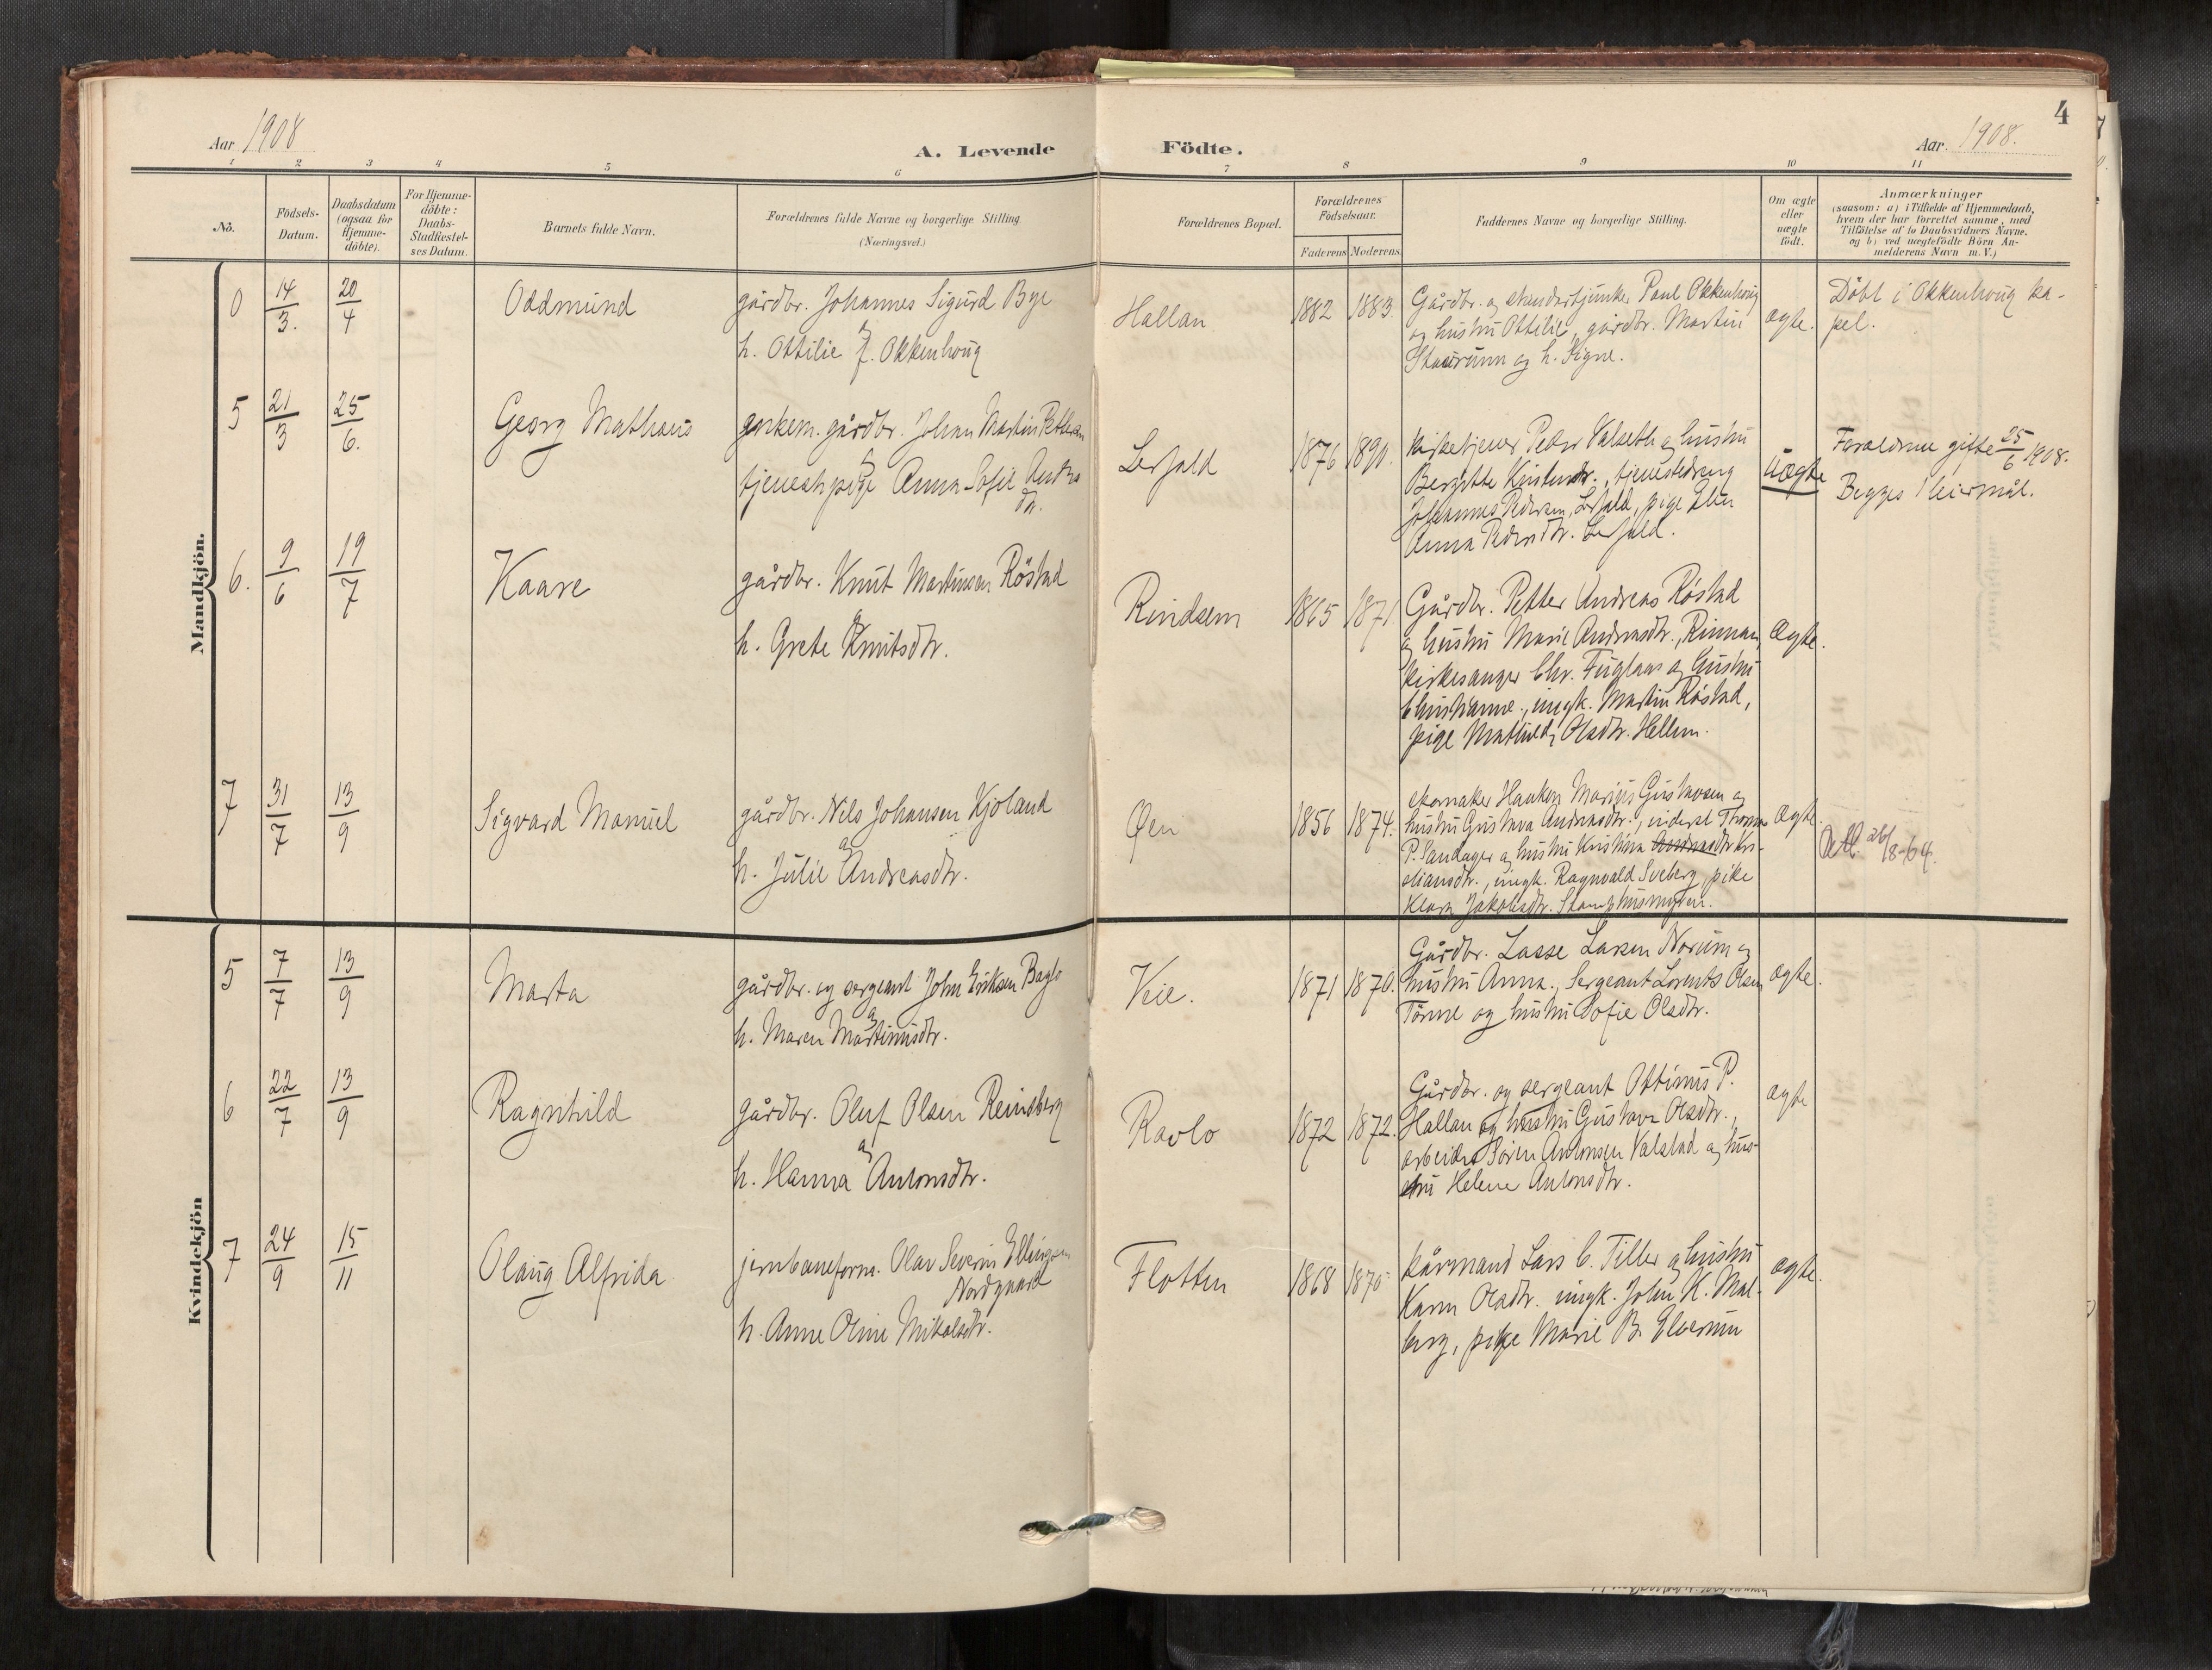 4
Aar 1908
A. Levende
Födte.
Aar. 1908.
1 2 3 4 5 6 7 8 9 10 11
Nô.
Födsels-
Datum.
Daabsdatum
(ogsaa for
Hjemme-
döbte).
For Hjemme-
döbte:
Daabs-
Stadfæstel-
ses Datum.
Barnets fulde Navn.
Forældrenes fulde Navne og borgerlige Stilling
(Næringsvei.)
Forældrenes Bopæl.
Forældrenes
Födselsaar.
Faderens Moderens
Faddernes Navne og borgerlige Stilling.
Om ægte
eller
uægte
födt.
Anmærkninger
(saasom: a) i Tilfælde af Hjemmedaab,
hvem der har forrettet samme, med
Tilföielse af to Daabsvidners Navne.
og b) ved uægtefödte Börn An-
melderens Navn m. V.)
Mandkjön.
0 14/3. 20/4 Oddmund
gårdbr. Johannes Sigurd Bye
og
h. Ottilie f. Okkenhoug
Hallan 1882 1883.
Gårdbr. og standartjunker Paul Okkenhoug
og hustru Ottilie, gårdbr. Martin
og h. Signe.
ægte.
Döbt i Okkenhoug ka-
pel.
5 21/3 25/6. Georg Mathæus
gårdbr. Johan Martin Petersen
og
tjenestepige Anna Sofie
Lerfald 1876 1890.
kirketjener Peder Valseth og hustru
Bergitte tjenestedreng
Johannes Pedersen, Lerfald, pige
Anna Pedersdtr. Lerfald.
uægte
Forældrene gifte 25/6 1908.
Begges 1 leiermål.
6. 9/6 19/7 Kaare
gårdbr. Knut Martinsen Röstad
og
h. Grete Knutsdtr.
Rindsem 1865 1871.
Gårdbr. Petter Andreas Röstad
og hustru Marie Andreasdtr., Rinnan,
kirkesanger Chr. Fuglaas og hustru
Christianne, ungk. Martin Röstad,
pige Mathilde Olsdtr. Hellem.
ægte.
7 31/7 13/9 Sigvard Manuel
gårdbr. Nils Johansen Kjoland
og
h. Julie Andreasdtr.
Øen 1856 1874.
skomaker Haakon Marius Gustavsen og
hustru Gustava Andreasdtr., inderst Thomas
P. Sandager og hustru Kristina Andreasdtr Kri-
stiansdtr., ungk. Ragnvald Sveberg, pike
Klara Jakobsdtr. Stamphusmyren.
ægte.
Att. 26/8-64.
Kvindekjön
5 7/7 13/9 Marta
gårdbr. og sergeant John Eriksen Baglo
og
h. Maren Martinusdtr.
Veie. 1871 1870.
Gårdbr. Lasse Larsen Norum og
hustru Anna., Sergeant Lorents Olsen
Törme og hustru Sofie Olsdtr.
ægte.
6 22/7 13/9 Ragnhild
gårdbr. Oluf Olsen Reinsberg
og
h. Hanna Antonsdtr.
Ravlo 1872 1872.
Gårdbr. og sergeant Ottinus P.
Hallan og hustru Gustava Olsdtr.,
arbeider Sören Antonsen Valstad og hus-
tru Helene Antonsdtr.
ægte
7 24/9 15/11 Olaug Alfrida
jernbaneform. Olav Severin Ellingsen
Nordgaard
h. Anne Oline Mikalsdtr.
Flotten 1868 1870
kårmand Lars C. Tiller og hustru
Karen Olsdtr. ungk. John K. Mal-
berg, pike Marie B. Elverum
ægte.